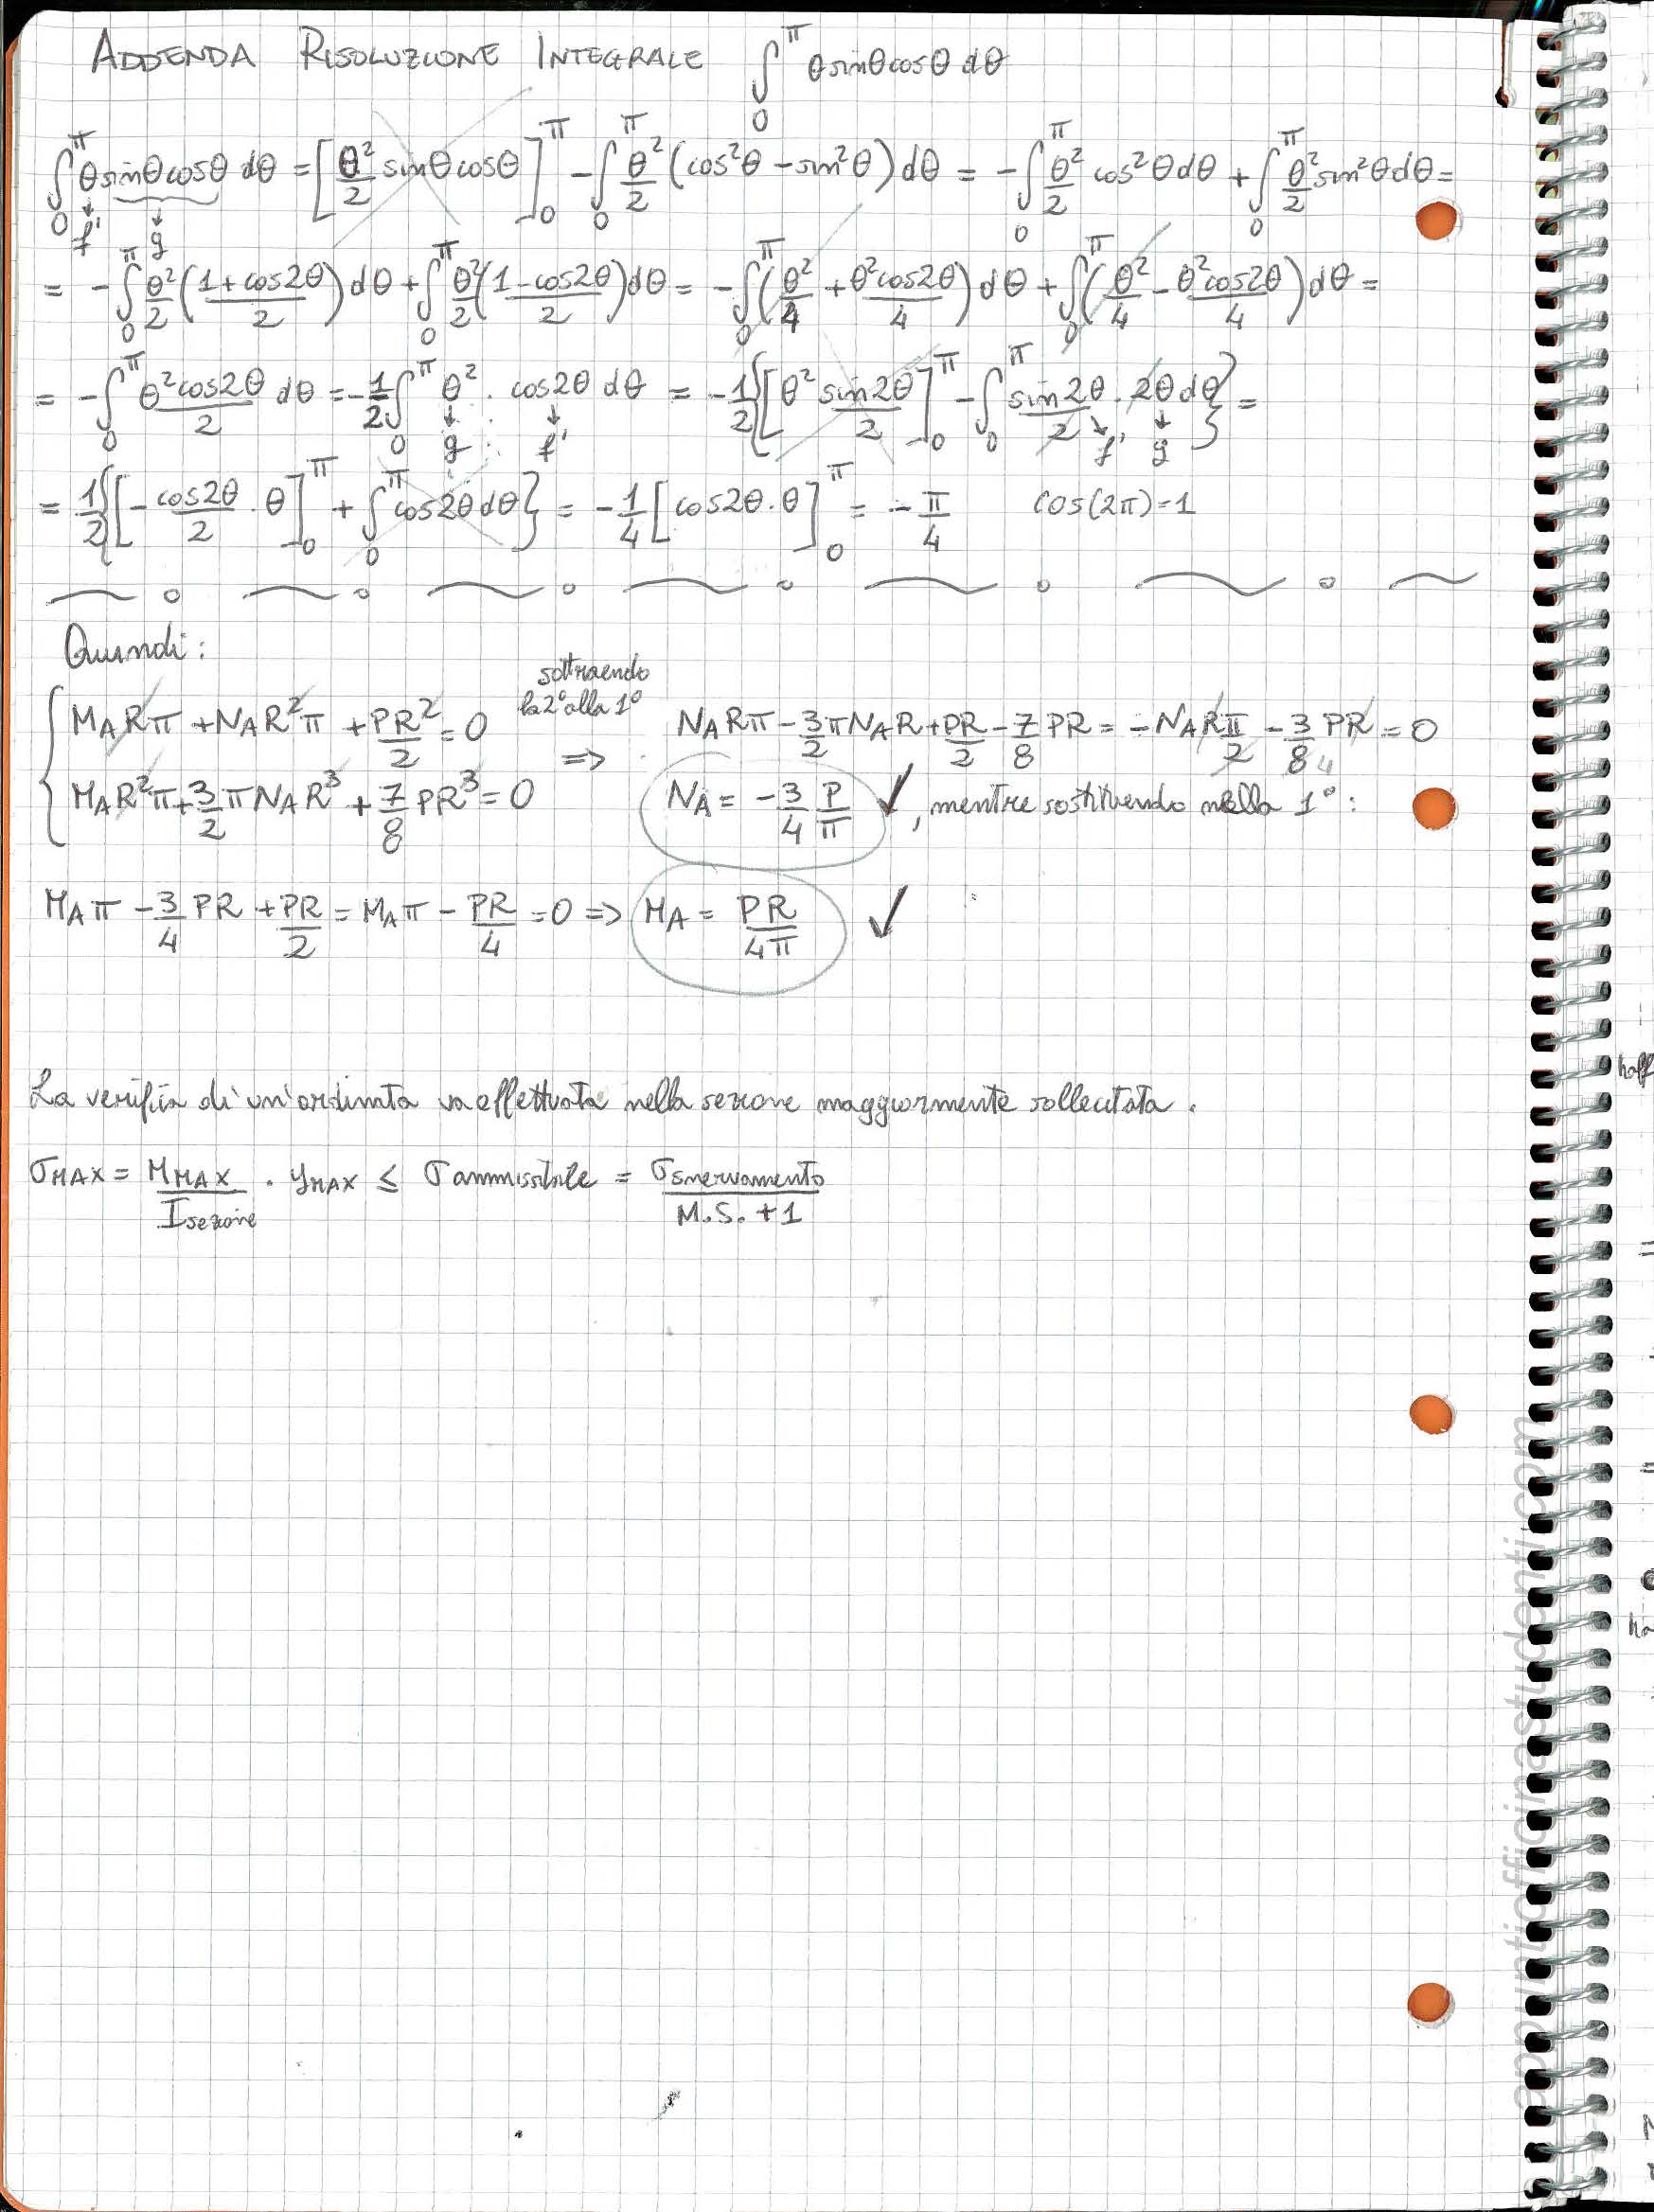 ADDENDA RISOLUZIONE INTEGRALE ∫₀^π θ sinθ cosθ dθ
∫₀^π θ sinθ cosθ dθ = [θ²/2 sinθ cosθ]₀^π - ∫₀^π θ²/2 (cos²θ - sin²θ) dθ = -∫₀^π θ²/2 cos²θ dθ + ∫₀^π θ²/2 sin²θ dθ =
f' g
= -∫₀^π θ²/2 ((1+cos2θ)/2) dθ + ∫₀^π θ²/2 ((1-cos2θ)/2) dθ = -∫₀^π (θ²/4 + θ²cos2θ/4) dθ + ∫₀^π (θ²/4 - θ²cos2θ/4) dθ =
= -∫₀^π θ²cos2θ/2 dθ = -1/2 ∫₀^π θ² · cos2θ dθ = -1/2 {[θ² sin2θ/2]₀^π - ∫₀^π sin2θ/2 · 2θ dθ} =
g f' f' g
= 1/2 {[-cos2θ/2 · θ]₀^π + ∫₀^π cos2θ dθ} = -1/4 [cos2θ·θ]₀^π = -π/4 cos(2π)=1
Quindi:
sottraendo
la 2° alla 1°
{ M_A Rπ + N_A R²π + PR²/2 = 0 => N_A Rπ - 3/2 π N_A R + PR/2 - 7/8 PR = -N_A Rπ/2 - 3/8 PR = 0
4
M_A R²π + 3/2 π N_A R³ + 7/8 PR³ = 0 N_A = -3/4 P/π ✓, mentre sostituendo nella 1°:
M_A π - 3/4 PR + PR/2 = M_A π - PR/4 = 0 => M_A = PR/4π ✓
La verifica di un'ordinata va effettuata nella sezione maggiormente sollecitata.
σ_MAX = M_MAX/I_sezione · y_MAX ≤ σ_ammissibile = σ_snervamento/(M.S. + 1)